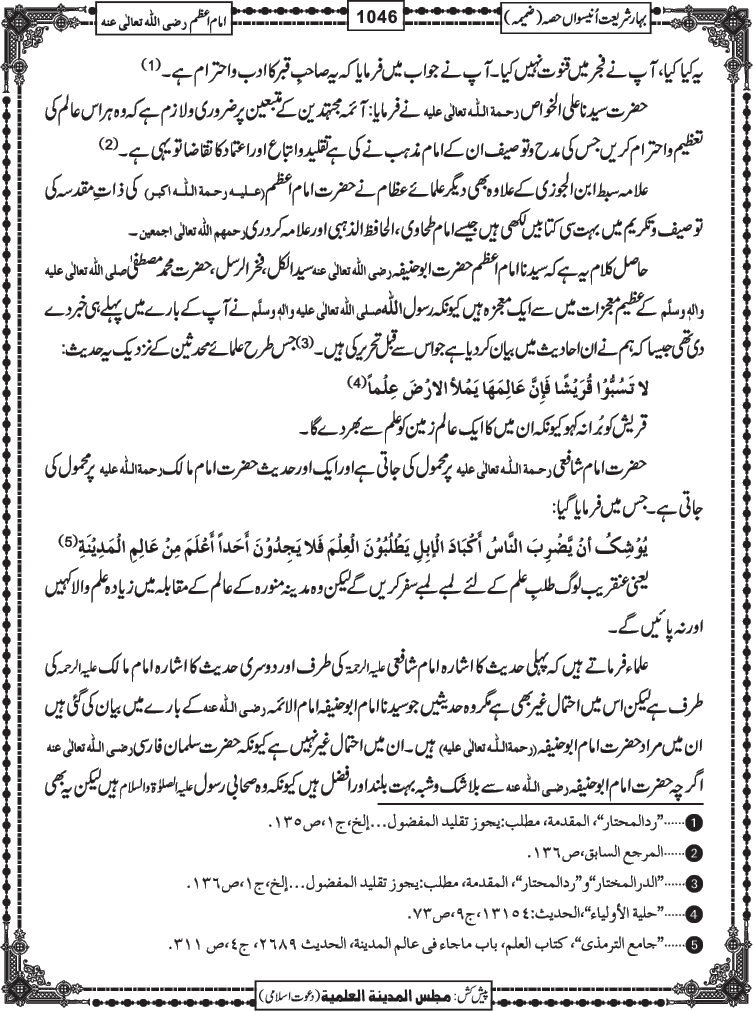 بہارِشریعت اُنیسواں حصہ (ضمیمہ)
1046
امام اعظم رضی اللہ تعالیٰ عنہ
یہ کیا کیا، آپ نے فجر میں قنوت نہیں کیا۔ آپ نے جواب میں فرمایا کہ یہ صاحبِ قبر کا ادب و احترام ہے۔(1)
حضرت سیدنا علی الخواص رحمۃ اللہ تعالٰی علیہ نے فرمایا: آئمہ مجتہدین کے متبعین پر ضروری و لازم ہے کہ وہ ہر اس عالم کی
تعظیم و احترام کریں جس کی مدح و توصیف ان کے امام مذہب نے کی ہے تقلید و اتباع اور اعتماد کا تقاضا تو یہی ہے۔(2)
علامہ سبط ابن الجوزی کے علاوہ بھی دیگر علمائے عظام نے حضرت امام اعظم (علیہ رحمۃ اللہ اکبر) کی ذاتِ مقدسہ کی
توصیف و تکریم میں بہت سی کتابیں لکھی ہیں جیسے امام طحاوی، الحافظ الذہبی اور علامہ کردری رحمھم اللہ تعالٰی اجمعین۔
حاصل کلام یہ ہے کہ سیدنا امام اعظم حضرت ابوحنیفہ رضی اللہ تعالٰی عنہ سید الکل، فخر الرسل، حضرت محمد مصطفےٰ صلی اللہ تعالٰی علیہ
واٰلہٖ وسلَّم کے عظیم معجزات میں سے ایک معجزہ ہیں کیونکہ رسول اللہ صلی اللہ تعالٰی علیہ واٰلہٖ وسلَّم نے آپ کے بارے میں پہلے ہی خبر دے
دی تھی جیسا کہ ہم نے ان احادیث میں بیان کر دیا ہے جو اس سے قبل تحریر کی ہیں۔(3) جس طرح علمائے محدثین کے نزدیک یہ حدیث:
لا تَسُبُّوْا قُرَيْشًا فَإِنَّ عَالِمَهَا يَمْلأُ الارْضَ عِلْماً(4)
قریش کو بُرا نہ کہو کیونکہ ان میں کا ایک عالم زمین کو علم سے بھر دے گا۔
حضرت امام شافعی رحمۃ اللہ تعالٰی علیہ پر محمول کی جاتی ہے اور ایک اور حدیث حضرت امام مالک رحمۃ اللہ علیہ پر محمول کی
جاتی ہے۔ جس میں فرمایا گیا:
يُوْشِكُ أنْ يَّضْرِبَ النَّاسُ أَكْبَادَ الْإبِلِ يَطْلُبُوْنَ الْعِلْمَ فَلا يَجِدُوْنَ أَحَداً أَعْلَمَ مِنْ عَالِمِ الْمَدِيْنَةِ(5)
یعنی عنقریب لوگ طلبِ علم کے لئے لمبے لمبے سفر کریں گے لیکن وہ مدینہ منورہ کے عالم کے مقابلہ میں زیادہ علم والا کہیں
اور نہ پائیں گے۔
علماء فرماتے ہیں کہ پہلی حدیث کا اشارہ امام شافعی علیہ الرحمۃ کی طرف اور دوسری حدیث کا اشارہ امام مالک علیہ الرحمہ کی
طرف ہے لیکن اس میں احتمال غیر بھی ہے مگر وہ حدیثیں جو سیدنا امام ابوحنیفہ امام الائمہ رضی اللہ عنہ کے بارے میں بیان کی گئی ہیں
ان میں مراد حضرت امام ابوحنیفہ (رحمۃاللہ تعالٰی علیہ) ہیں۔ ان میں احتمال غیر نہیں ہے کیونکہ حضرت سلمان فارسی رضی اللہ تعالٰی عنہ
اگرچہ حضرت امام ابوحنیفہ رضی اللہ عنہ سے بلاشک و شبہ بہت بلند اور افضل ہیں کیونکہ وہ صحابی رسول علیہ الصلوٰۃ والسلام ہیں لیکن یہ بھی
1......"ردالمحتار"، المقدمة، مطلب: يجوز تقليد المفضول...إلخ، ج١، ص١٣٥.
2......المرجع السابق، ص١٣٦.
3......"الدرالمختار" و"ردالمحتار"، المقدمة، مطلب: يجوز تقليد المفضول...إلخ، ج١، ص١٣٦.
4......"حلية الأولياء"، الحديث: ١٣١٥٤، ج٩، ص٧٣.
5......"جامع الترمذی"، كتاب العلم، باب ماجاء فی عالم المدينة، الحديث ٢٦٨٩، ج٤، ص ٣١١.
پیش کش: مجلس المدینۃ العلمیۃ (دعوت اسلامی)